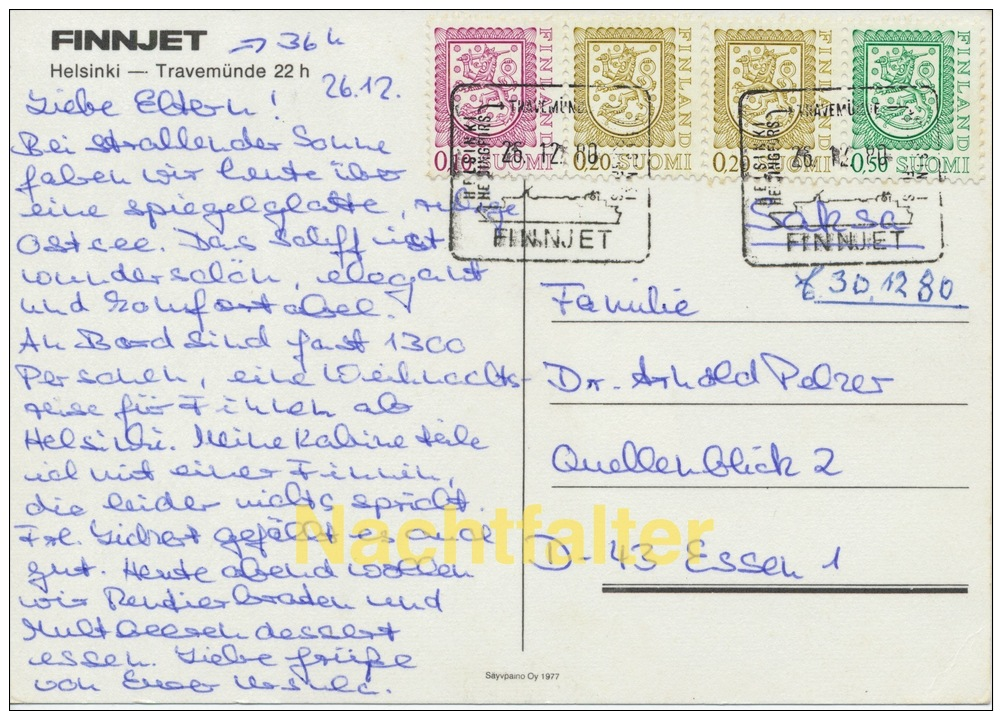 FINNJET → 36 h
Helsinki — Travemünde 22 h
26.12.
Liebe Eltern!
Bei strallender Sonne
faben wir heute über
eine spiegelglatte, ruhige
Ostsee. Das Schiff ist
wunderschön, elegant
und komfortabel!
An Bord sind fast 1300
Personen, eine Weihnachts-
reise für Finnen ab
Helsinki. Meine Kabine teile
ich mit einer Finnin,
die leider nichts spricht.
Frl. Lickert gefällt es auch
gut. Heute abend wollen
wir Rentierbraten und
Multbeerendessert
essen. Liebe Grüße
von Eurer Ursula.
FINLAND
0,10 SUOMI
FINLAND
0,20 SUOMI
FINLAND
0,20 SUOMI
FINLAND
0,50 SUOMI
TRAVEMÜNDE
HELSINKI
HELSINGFORS
26.12.80
FINNJET
TRAVEMÜNDE
HELSINKI
HELSINGFORS
26.12.80
FINNJET
Saksa
30.12.80
Familie
Dr. Arnold Pelzer
Quellenblick 2
D-43 Essen 1
Nachtfalter
Säyvpaino Oy 1977